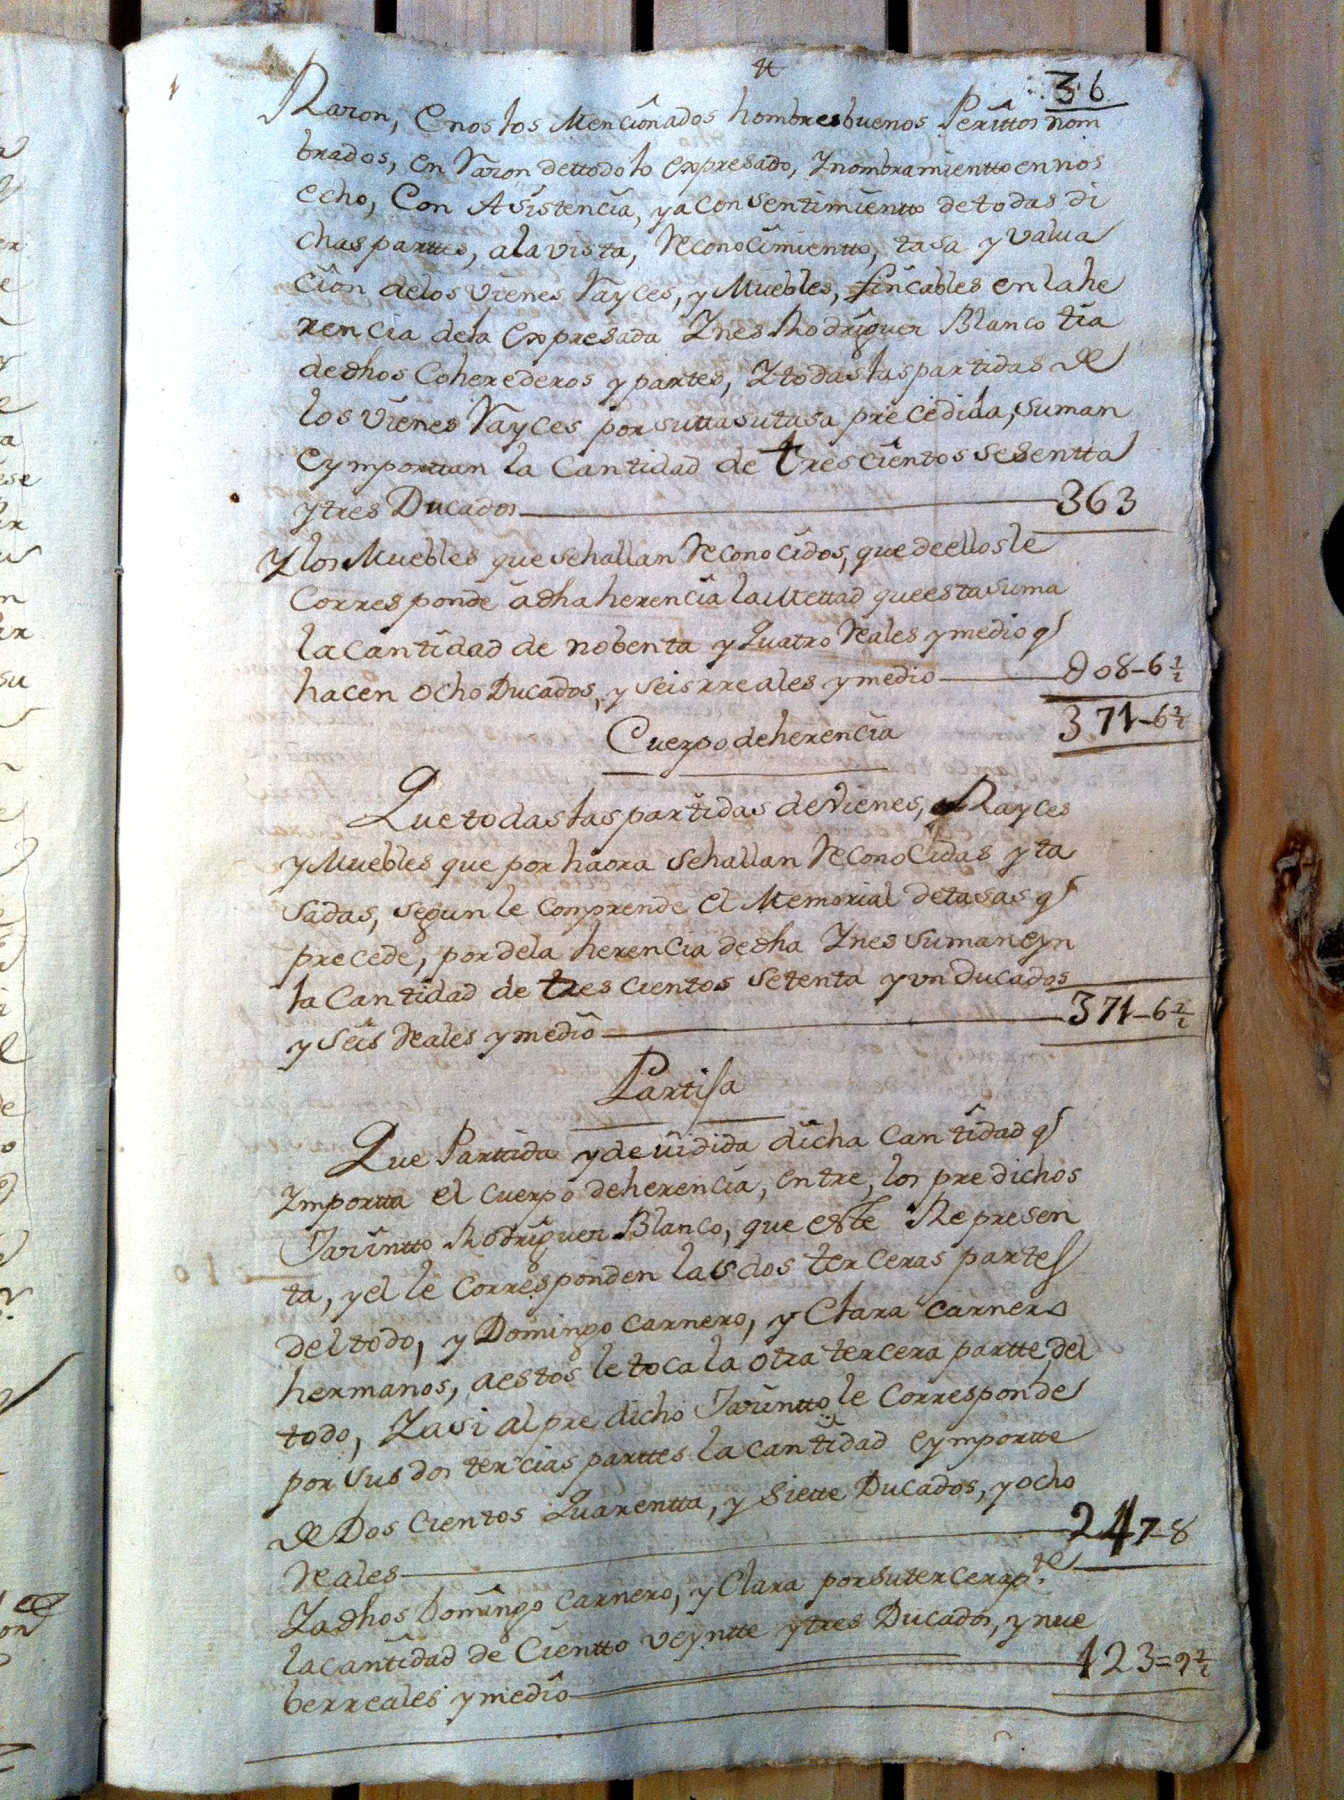 36
Razon, Enos los Mencionados hombres buenos Perittos nom
brados, en Razon dettodo lo expresado, Ynombramientto en nos
echo, Con Asistencia, y a consentimientto detodas di
chas parttes, ala vista, Reconocimientto, tasa y valua
cion delos vienes Rayces, y Muebles, fincables en la he
rencia dela expresada Ynes Rodriguez Blanco tia
de dhos Coherederos y partes, Y todas las partidas de
los vienes Rayces por sutta sutasa precedida, suman
eymporttan la Cantidad de trescientos sesentta
ytres Ducados 363
Y los Muebles que sehallan Reconocidos, que deellos le
Corresponde â dha herencia la Mettad que esta suma
la cantidad de nobenta y quatro Reales y medio q
hacen ocho Ducados, y seis rreales y medio 008-6½
371-6½
Cuerpo de herencia
Que todas las partidas de vienes, Rayces
y Muebles que por haora sehallan Reconocidas y ta
sadas, segun le comprende el Memorial detasas q
precede, por dela herencia de dha Ynes suman eyn
la Cantidad de tres cientos setenta y un Ducados
y seis Reales y medio 371-6½
Partija
Que Partida y devidida dicha cantidad q
Ymportta el cuerpo de herencia, entre, los predichos
Jazintto Rodriguez Blanco, que este Represen
ta, y el le Corresponden las dos terceras partes
del todo, y Domingo carnero, y Clara carnero
hermanos, aestos le toca la otra tercera partte del
todo, Y asi al pre dicho Jazintto le Corresponde
por sus dos tercias parttes la cantidad eymportte
de Dos Cientos quarentta, y siette Ducados, y ocho
Reales 247-8
Y a dhos Domingo Carnero, y Clara por su tercera pte
la cantidad de Cientto veyntte y tres Ducados, y nue
be rreales y medio 123=9½